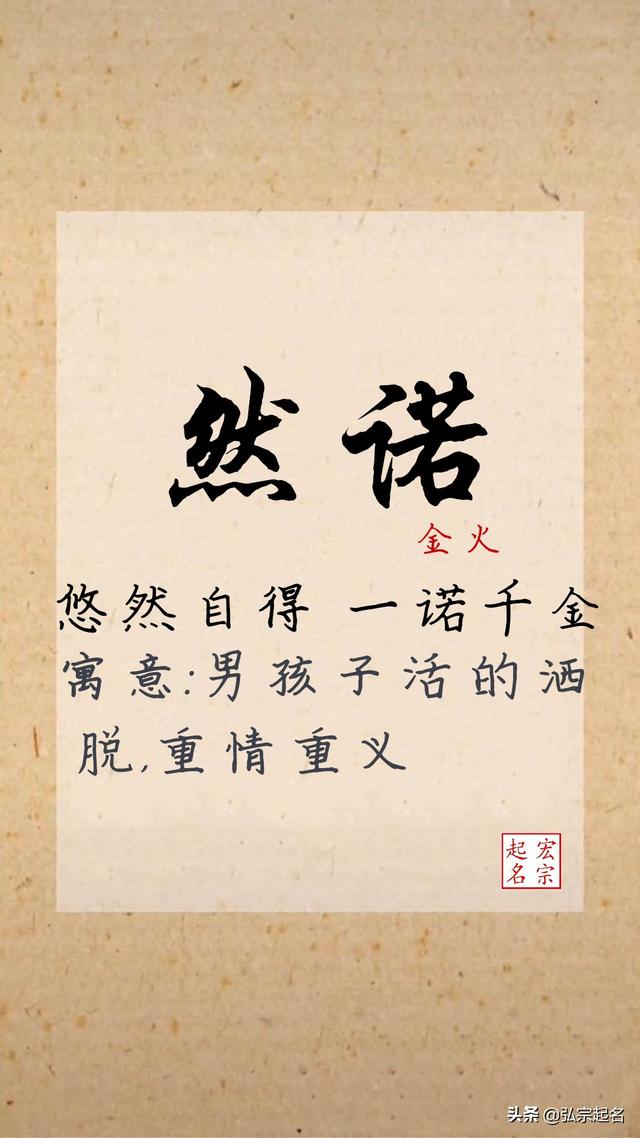 然诺
金火
悠然自得 一诺千金
寓意:男孩子活的洒
脱,重情重义
宏宗
起名
头条 @弘宗起名